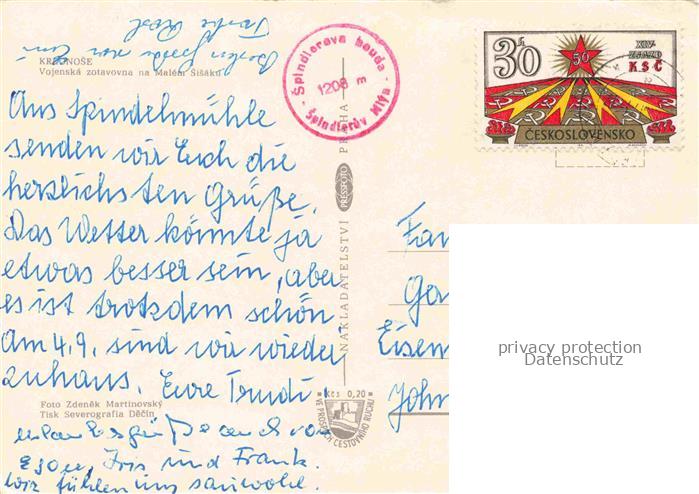 KRKONOŠE
Vojenská zotavovna na Malém Šišáku
Aus Spindelmühle
senden wir Euch die
herzlichsten Grüße.
Das Wetter könnte ja
etwas besser sein, aber
es ist trotzdem schön
Am 4.9. sind wir wieder
zuhaus. Eure Trudi
Foto Zdeněk Martinovský
Tisk Severografia Děčín
Iris und Frank.
wir fühlen uns sauwohl.
Špindlerova bouda
1208 m
Špindlerův Mlýn
NAKLADATELSTVÍ PRESSFOTO PRAHA
Kčs 0,20
VE PROSPĚCH CESTOVNÍHO RUCHU
30h
50
XIV.
SJEZD
KSČ
ČESKOSLOVENSKO
Fam
Ga
Eisen
John
privacy protection
Datenschutz